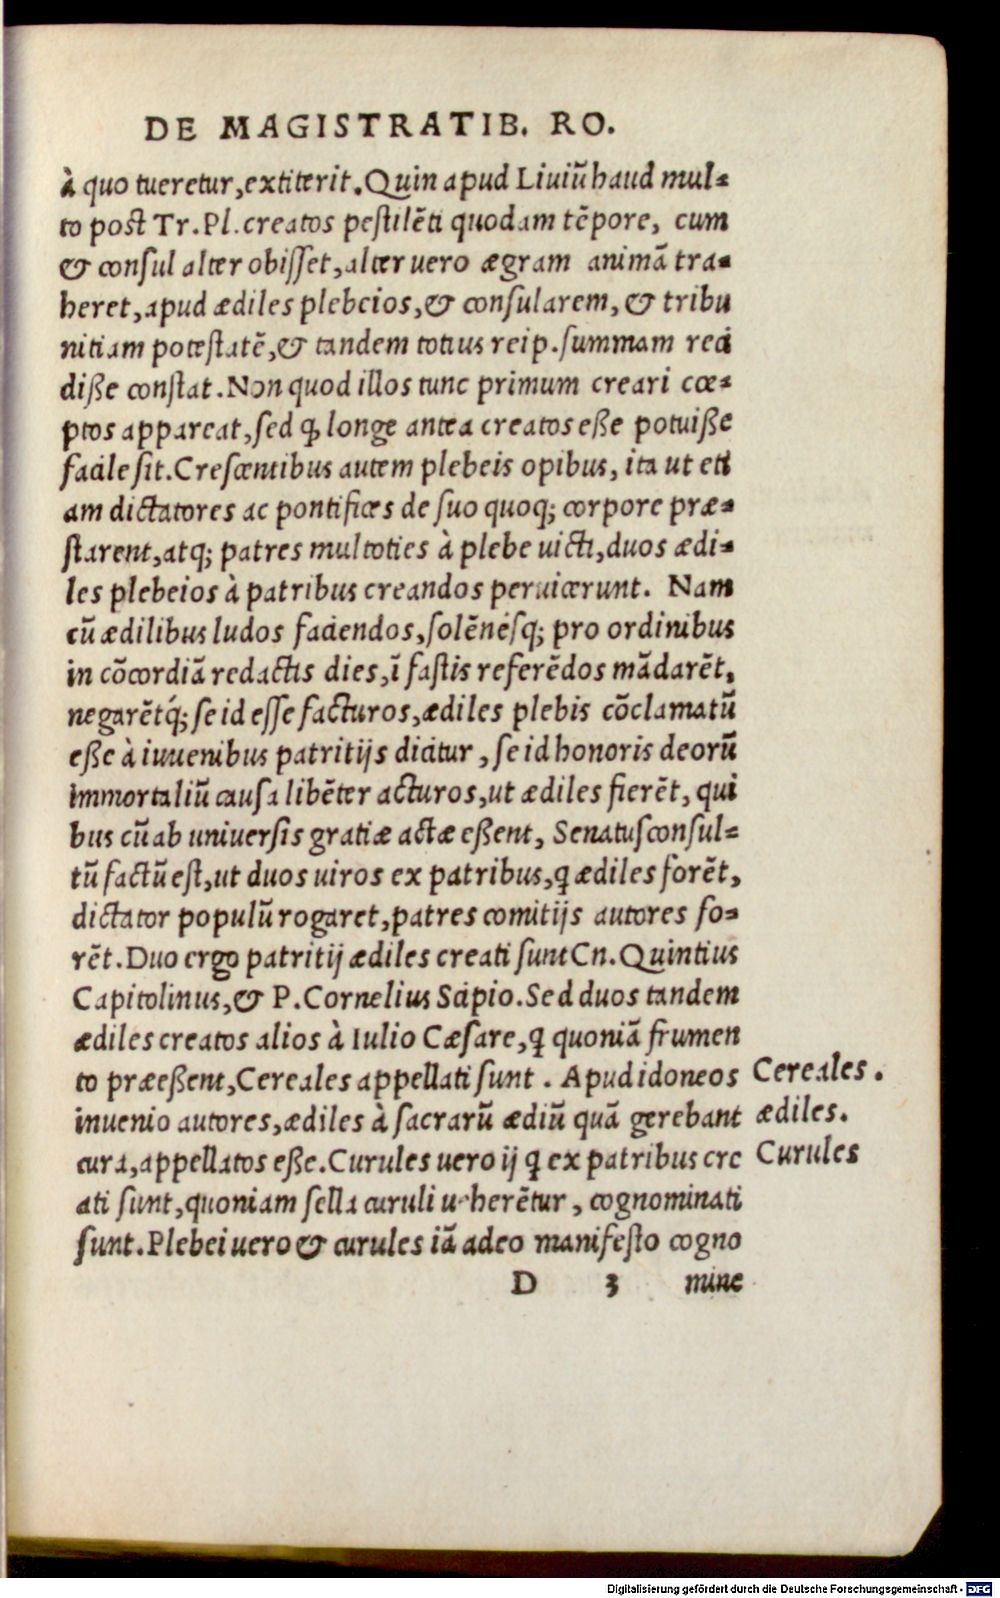 DE MAGISTRATIB. RO.
à quo tueretur, extiterit. Quin apud Liuiū haud mul-
to post Tr. Pl. creatos pestilēti quodam tēpore, cum
& consul alter obisset, alter uero ægram animā tra-
heret, apud ædiles plebeios, & consularem, & tribu
nitiam potestatē, & tandem totius reip. summam reci
diße constat. Non quod illos tunc primum creari cœ-
ptos appareat, sed ꝙ longe antea creatos eße potuiße
facile sit. Crescentibus autem plebeis opibus, ita ut eti
am dictatores ac pontifices de suo quoq; corpore præ-
starent, atq; patres multoties à plebe uicti, duos ædi-
les plebeios à patribus creandos peruicerunt. Nam
cū ædilibus ludos faciendos, solēnésq; pro ordinibus
in cōcordiā redactis dies, ī fastis referēdos mādarēt,
negarētq́; se id esse facturos, ædiles plebis cōclamatū
eße à iuuenibus patritijs dicitur, se id honoris deorū
immortaliū causa libēter acturos, ut ædiles fierēt, qui
bus cū ab uniuersis gratiæ actæ eßent, Senatusconsul-
tū factū est, ut duos uiros ex patribus, q̃ ædiles forēt,
dictator populū rogaret, patres comitijs autores fo-
rēt. Duo ergo patritij ædiles creati sunt Cn. Quintius
Capitolinus, & P. Cornelius Scipio. Sed duos tandem
ædiles creatos alios à Iulio Cæsare, q̃ quoniā frumen
to præeßent, Cereales appellati sunt. Apud idoneos
inuenio autores, ædiles à sacrarū ædiū quā gerebant
cura, appellatos eße. Curules uero ij q̃ ex patribus cre
ati sunt, quoniam sella curuli ueherētur, cognominati
sunt. Plebei uero & curules iā adeo manifesto cogno
D 3 mine
Cereales.
ædiles.
Curules
Digitalisierung gefördert durch die Deutsche Forschungsgemeinschaft - DFG